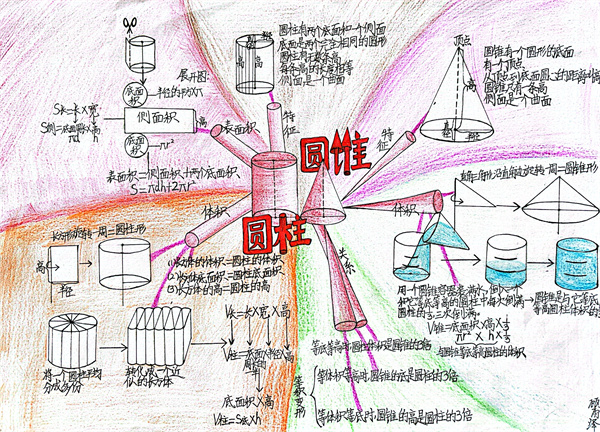 圆柱有两个底面和一个侧面
底面是两个完全相同的圆形
圆柱有无数条高
每条高的长度相等
侧面是一个曲面
高
特征
展开图
底面积
侧面积
高
底面积
πr²
S长=长×宽
S侧=底面周长×高
πd h
表面积
表面积=侧面积+两个底面积
S=πdh+2πr²
圆锥
圆柱
顶点
高
圆锥有一个圆形的底面
有一个顶点
从顶点到底面圆心的距离叫高
圆锥只有一条高
侧面是一个曲面
特征
体积
长方形旋转一周=圆柱形
高
半径
(1)长方体的体积=圆柱的体积
(2)长方体底面积=圆柱底面积
(3)长方体的高=圆柱的高
V长=长×宽×高
底面积×高
V柱=S底×h
将一个圆柱平均分成多份
转化成一个近似的长方体
体积
直角三角形沿直角边旋转一周=圆锥形
用一个圆锥容器装满水,倒入一个
和它等底等高的圆柱中每次倒满
圆柱的⅓,三次倒满。
圆锥是与它等底等高圆柱体积的⅓
V锥=底面积×高×⅓
πr² × h × ⅓
关系
等底等高时圆柱体积是圆锥的3倍
等积变形
等体积等高时,圆锥的底是圆柱的3倍
等体积等底时,圆锥的高是圆柱的3倍